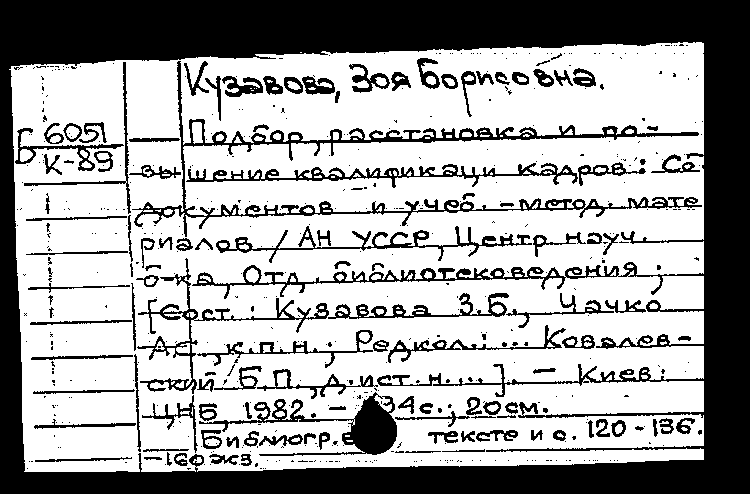 Кузавова, Зоя Борисовна.
Б 6051
К-89
Подбор, расстановка и по-
вышение квалификаци кадров: Сб.
документов и учеб.-метод. мате
риалов / АН УССР, Центр. науч.
б-ка, Отд. библиотековедения;
[Сост.: Кузавова З.Б., Чачко
А.С., к.п.н.; Редкол.: ... Ковалев-
ский Б.П., д.ист.н. ...]. — Киев:
ЦНБ, 1982. — 34с.; 20см.
Библиогр. в тексте и с. 120-136.
—160 экз.